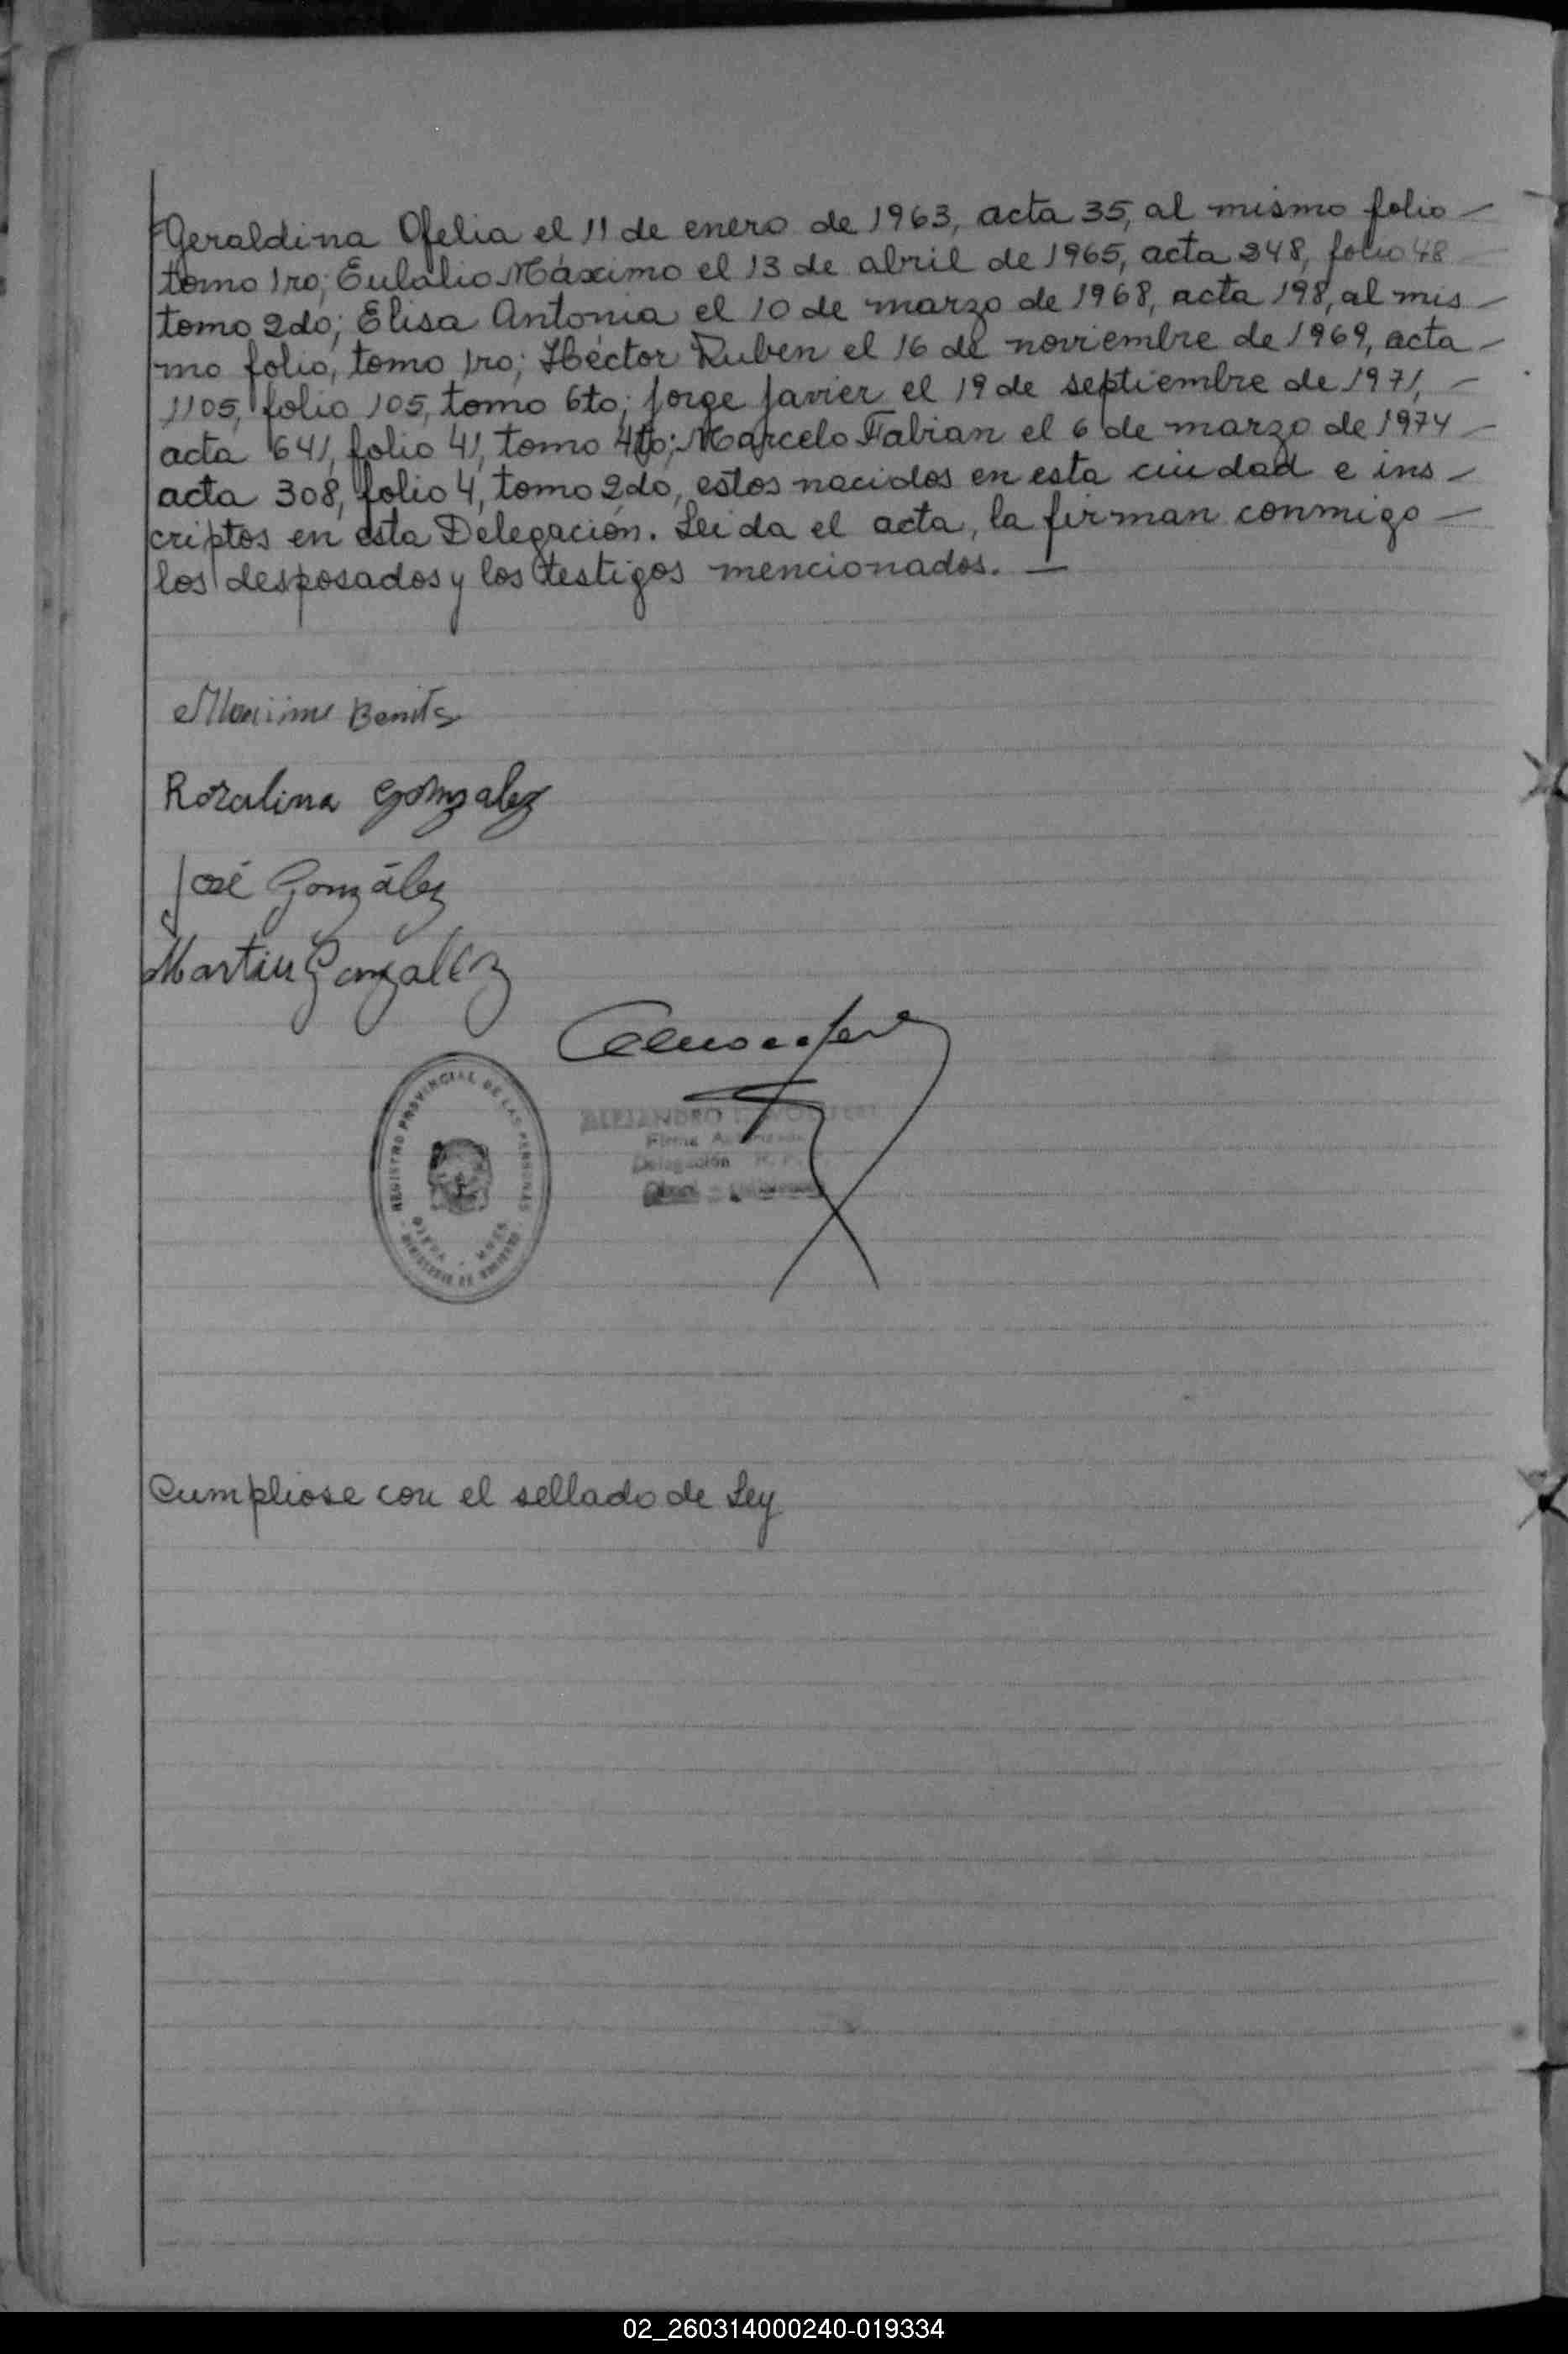 Geraldina Ofelia el 11 de enero de 1963, acta 35, al mismo folio —
tomo 1ro; Eulalio Máximo el 13 de abril de 1965, acta 348, folio 48
tomo 2do; Elisa Antonia el 10 de marzo de 1968, acta 198, al mis —
mo folio, tomo 1ro; Héctor Ruben el 16 de noviembre de 1969, acta —
1105, folio 105, tomo 6to; Jorge Javier el 19 de septiembre de 1971, —
acta 641, folio 41, tomo 4to; Marcelo Fabian el 6 de marzo de 1974 —
acta 308, folio 4, tomo 2do, estos nacidos en esta ciudad e ins —
criptos en esta Delegación. Leida el acta, la firman conmigo —
los desposados y los testigos mencionados. —
Benits
Rozalina Gonzalez
José González
Martin Gonzalez
REGISTRO PROVINCIAL DE LAS PERSONAS
MINISTERIO DE GOBIERNO
ALEJANDRO
Firma
Delegación
Cumpliose con el sellado de Ley
02_260314000240-019334